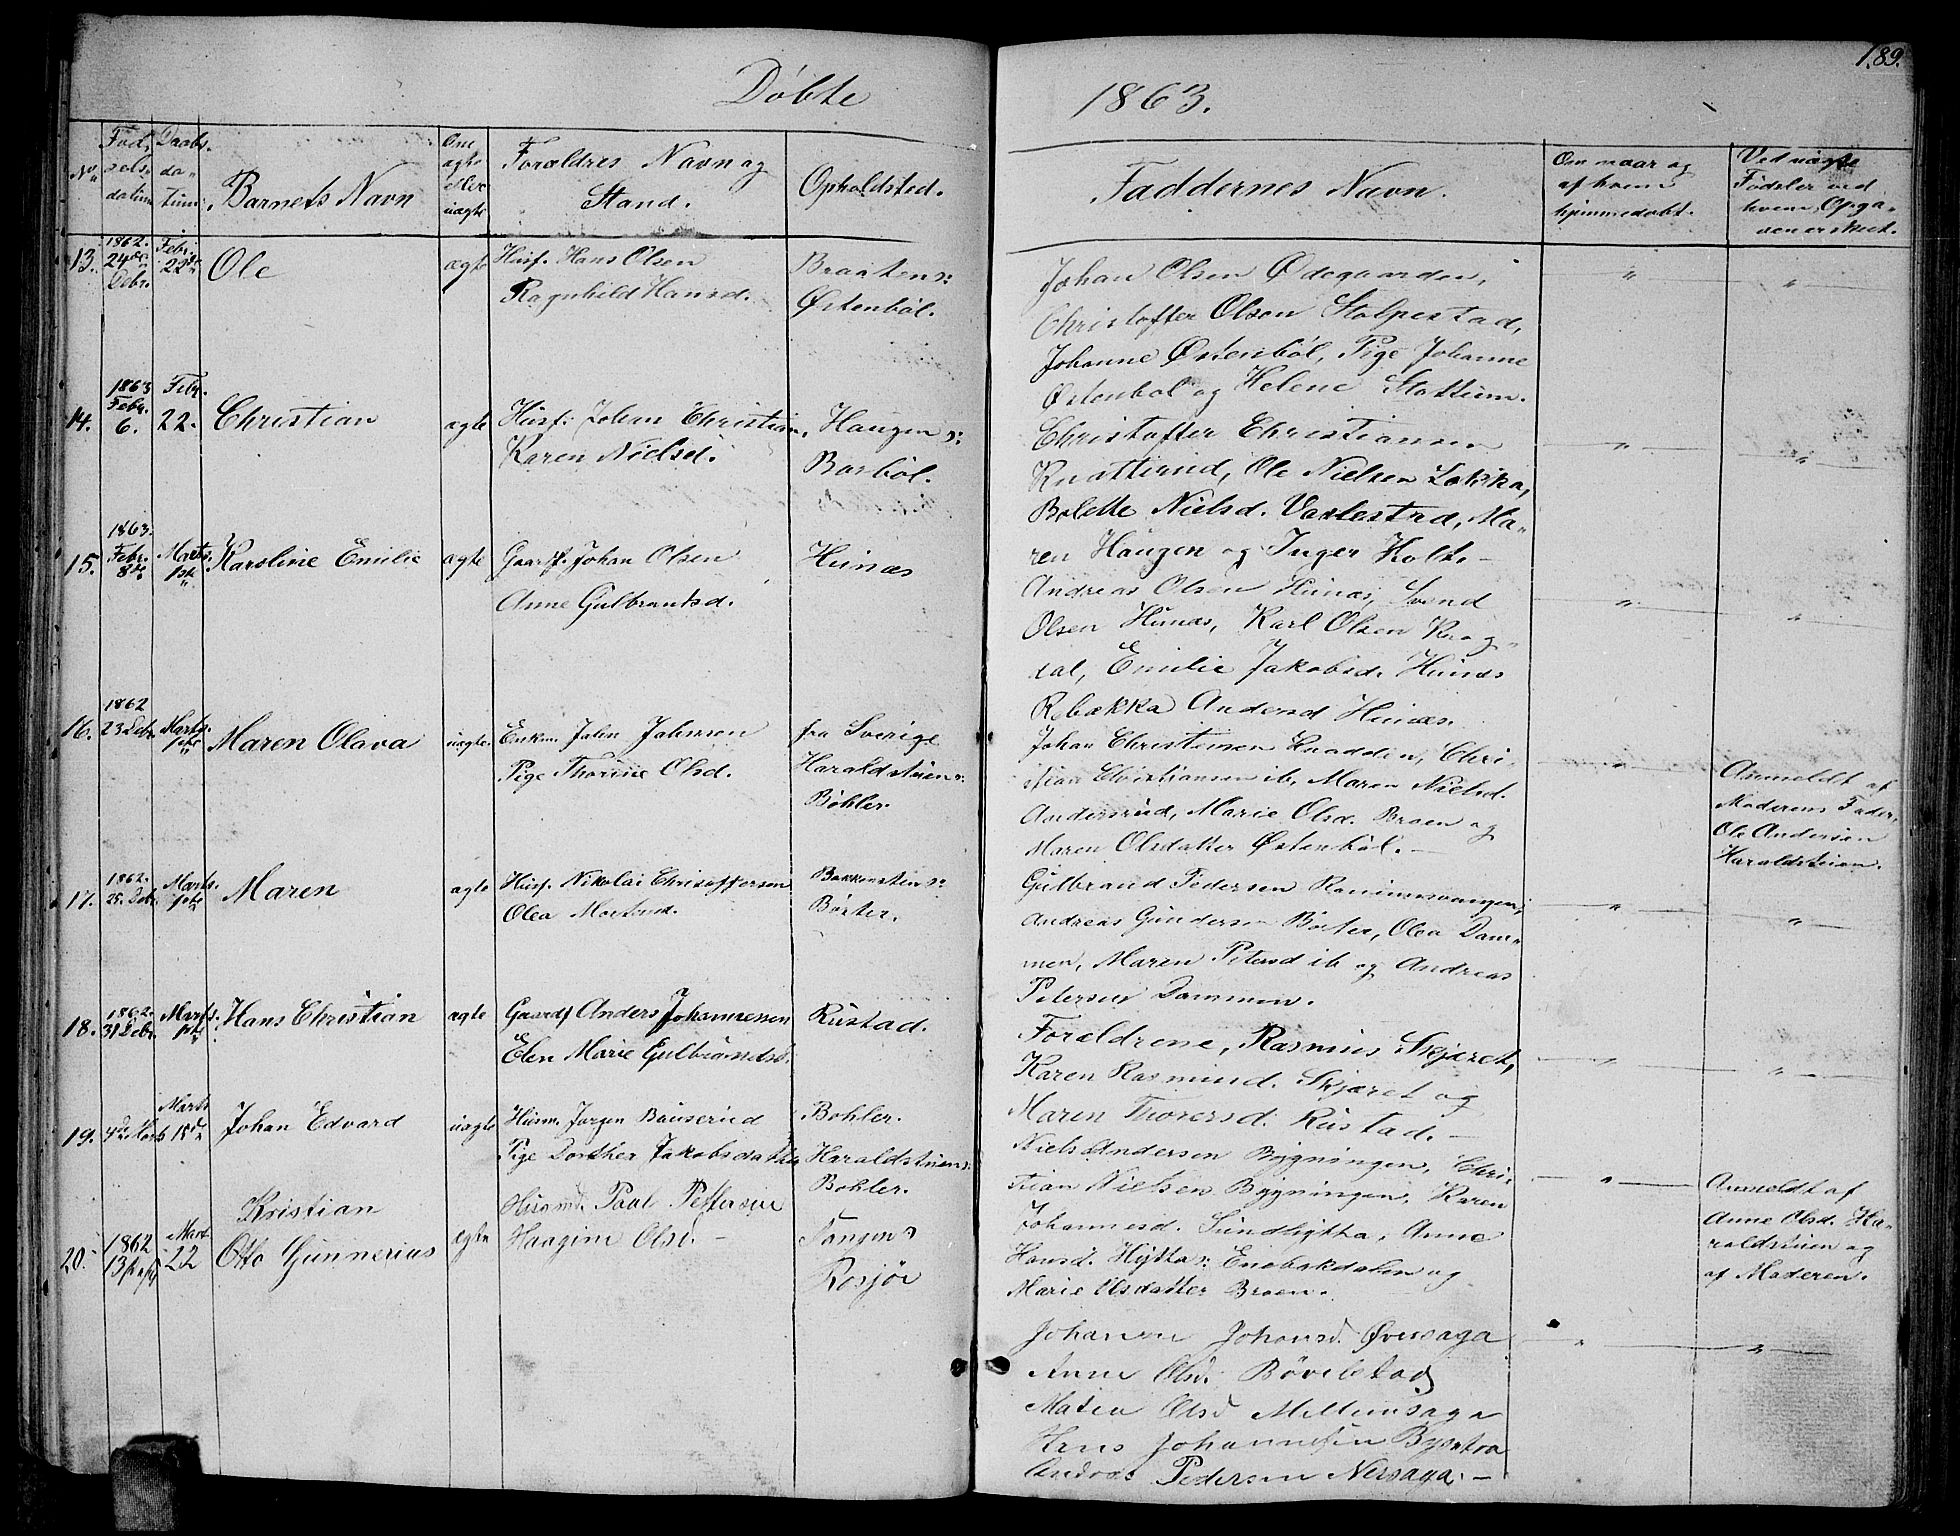 189.
Døbte
1863.
No
Fød-
sels-
datum
Daabs-
da-
tum.
Barnets Navn
Om
ægte
eller
uægte
Forældres Navn og
Stand.
Opholdsted.
Faddernes Navn.
Om naar og
af hvem
hjemmedøbt.
Ved uægte
Fødsler ved
hvem Opga-
ven er skeet.
13.
1862.
24de
Debr.
Febr.
22de
Ole
ægte
Husf. Hans Olsen
Ragnhild Hansd.
Braaten s:
Østenbøl.
Johan Olsen Ødegaarden,
Christoffer Olsen Stolpestad,
Johanne Østenböl, Pige Johanne
Østenbøl og Helene Stottum.
14.
1863
Febr.
6.
Febr.
22.
Christian
ægte
Husf. Johan Christian,
Karen Nielsd.
Haugen s:
Barböl.
Christoffer Christiansen
Knatterud, Ole Nielsen Løkka,
Bolette Nielsd. Varlestad, Ma-
ren Haugen og Inger Holt.
15.
1863.
Febr.
8de
Marts
1ste
Karoline Emilie
ægte
Gaardf. Johan Olsen
Anne Gulbrantsd.
Hunæs
Andreas Olsen Hunæs, Svend
Olsen Hunæs, Karl Olsen Krog-
dal, Emilie Jakobsd. Hunæs
Rebækka Andersd Hunæs.
16.
1862
23 Debr.
Marts
1ste
Maren Olava
uægte
Enkm. Johan Johnsen
Pige Thorine Olsd.
fra Sverige
Haraldstuen s:
Böhler.
Johan Christensen Knadden, Chri-
stian Christiansen ib, Maren Nielsd.
Andersrud, Marie Olsd. Braen og
Maren Olsdatter Østenböl.
Anmeldt af
Moderens Fader
Ole Andersen
Haraldstuen.
17.
1862.
25. Debr.
Marts
1ste
Maren
ægte
Husf. Nikolai Christoffersen
Olea Mortensd.
Bakkestuen s:
Börter.
Gulbrand Pedersen
Andreas Gundersen Börter, Olea Dam-
men, Maren Petersd ib og Andreas
Petersen Dammen.
18.
1862.
31 Debr.
Marts
1ste
Hans Christian
ægte
Gaardf Anders Johannessen
Elen Marie Gulbrandsd.
Rustad.
Forældrene, Rasmus Skjæret,
Karen Rasmusd. Skjæret og
Maren Thorersd. Rustad.
19.
4de Marts
Marts
15de
Johan Edvard
uægte
Husm. Jørgen Bauserud
Pige Dorthea Jakobsdatter
Bohler.
Haraldstuen s:
Bohler.
Niels Andersen Bygningen, Chri-
stian Nielsen Bygningen, Karen
Johannesd. Sundhytta, Anne
Hansd. Hytta s: Enebakdalen og
Marie Olsdatter Braen.
Anmeldt af
Anne Olsd. Ha-
raldstuen og
af Moderen.
20.
1862
Mart
22
Kristian
Otto Gunnerius
ægte
Husmd. Paal Pettersen
Haagine Olsd.
Tangen s
Rosjøe
Johanne Johansd. Øversaga
Anne Olsd. Bøvelstad
Matea Olsd Mellemsaga
Hans Johannesen Bysetra
Andreas Pedersen Nersaga.